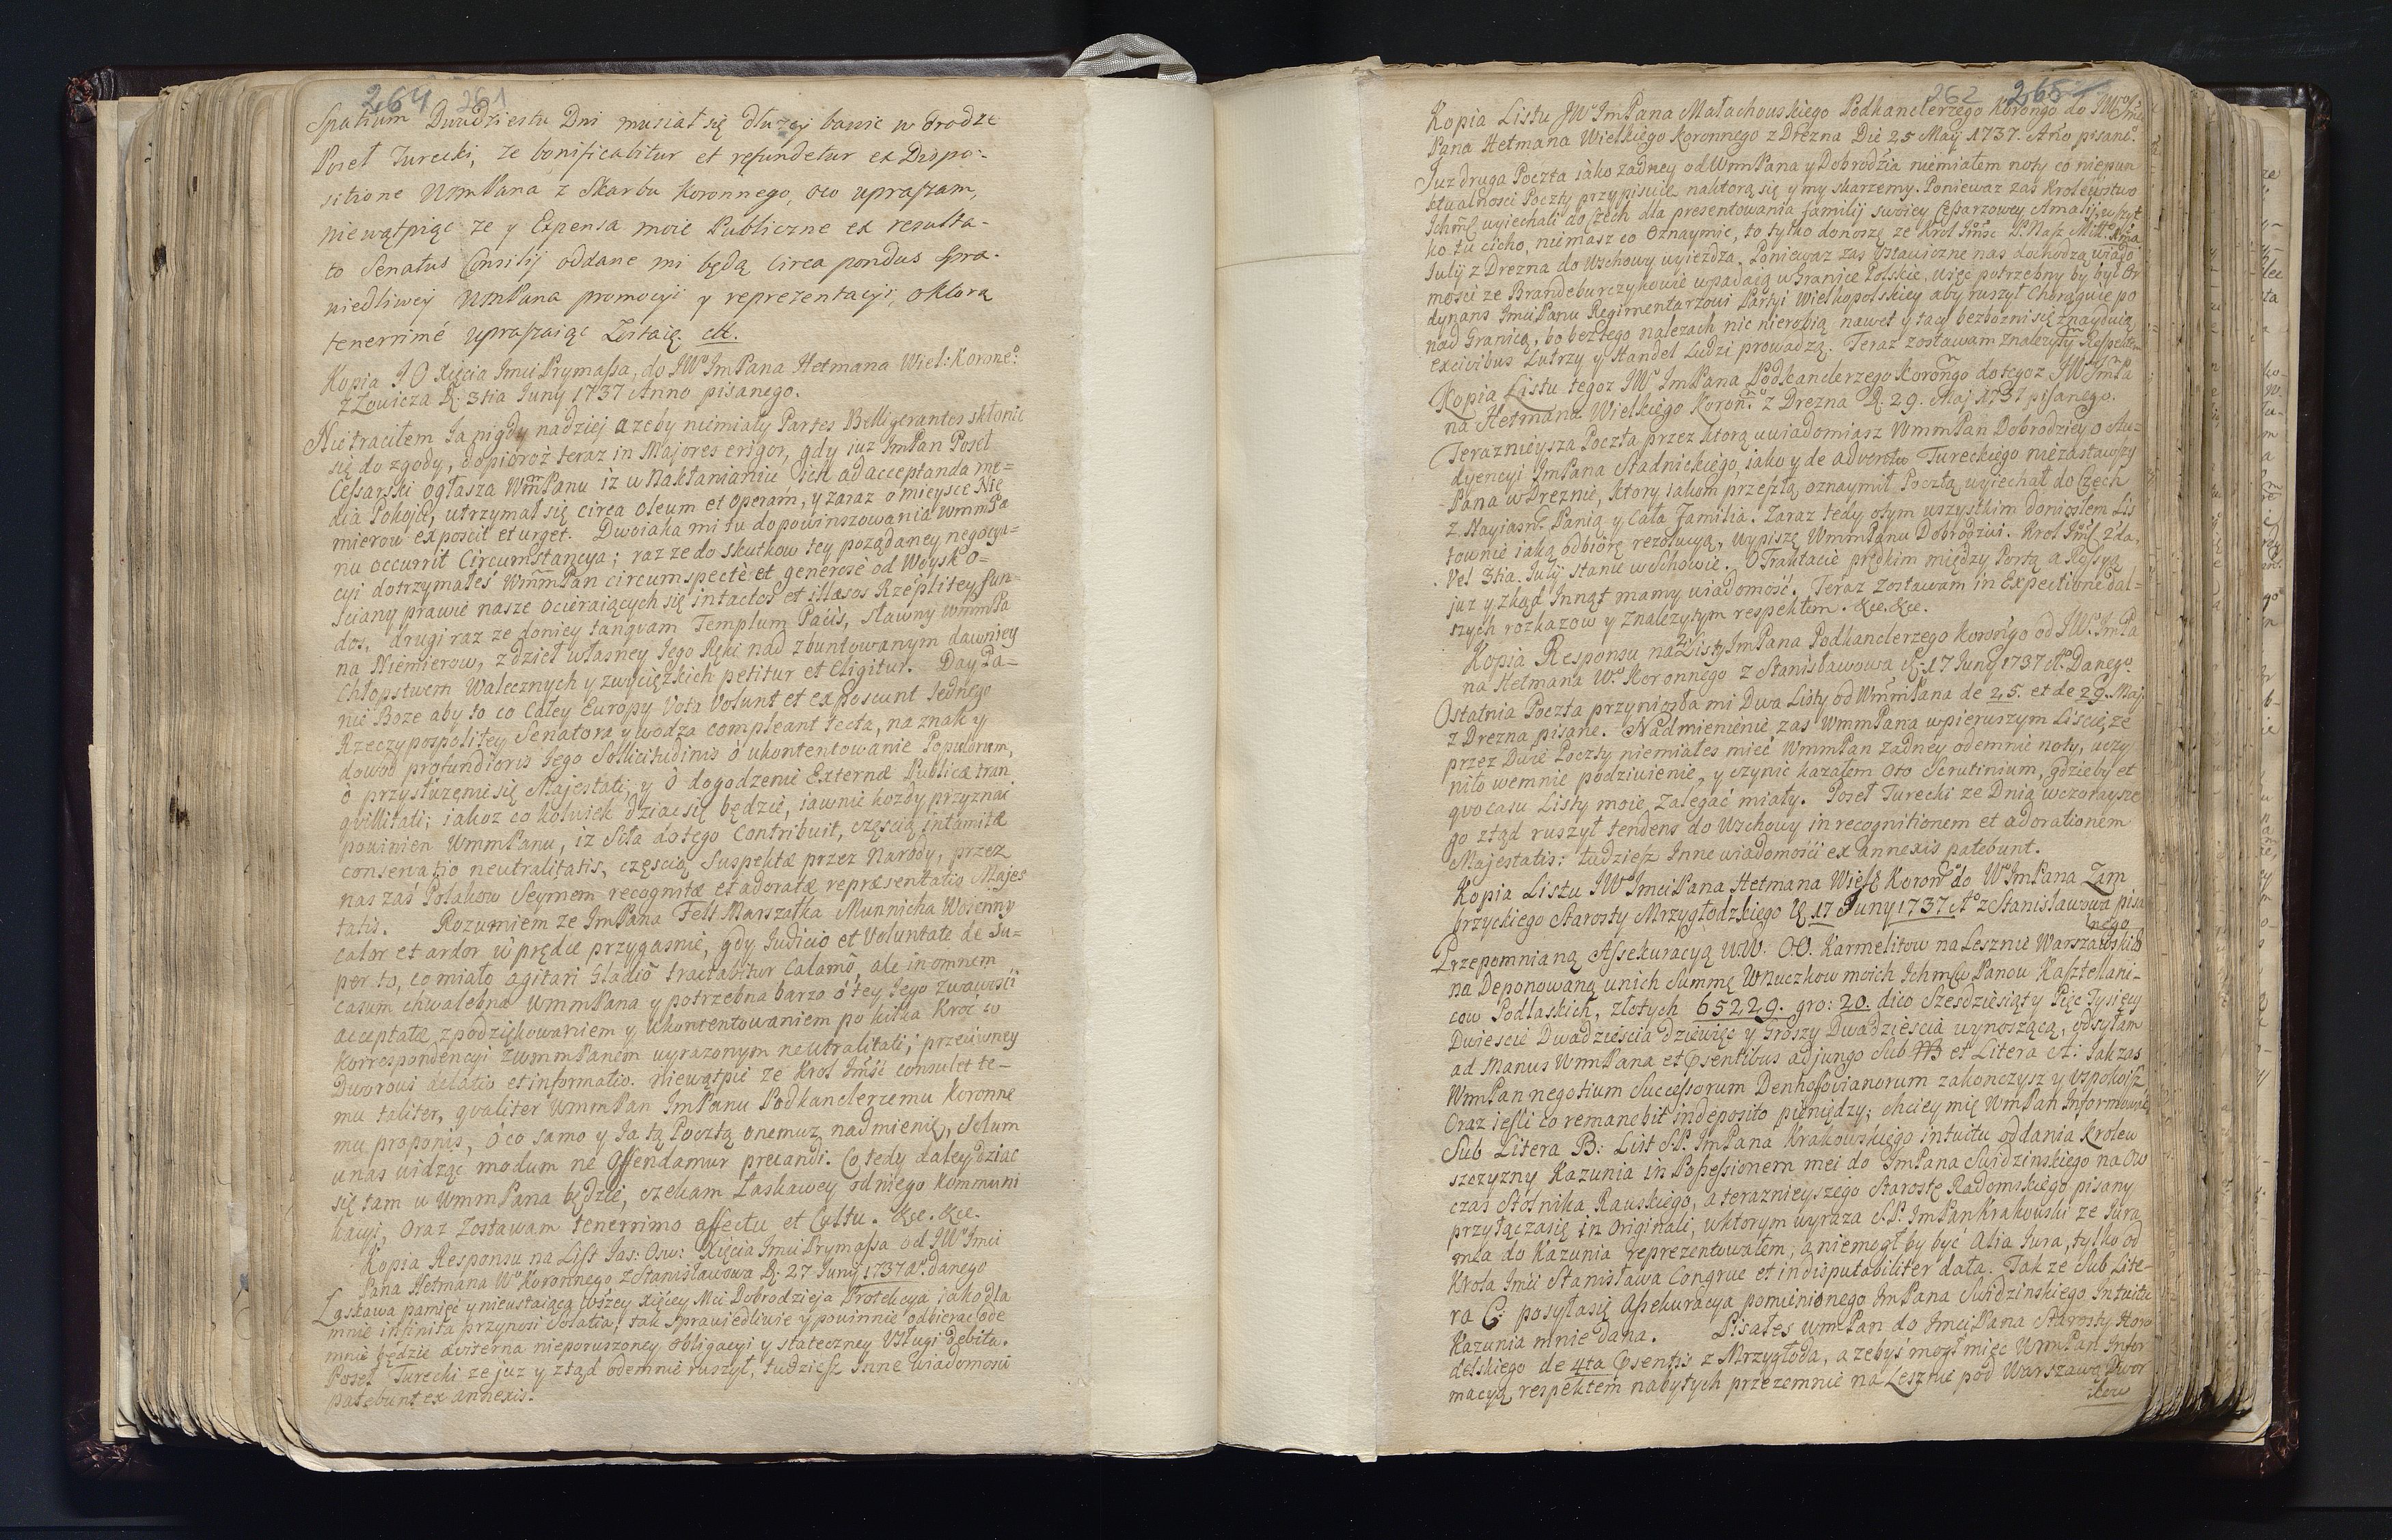 264 261
Spatium Dwudziestu Dni musiał się dłużej bawić w drodze
Poseł Turecki, że bonificabitur et refundetur ex Dispo-
sitione WmPana z Skarbu Koronnego, oco upraszam,
niewątpiąc ze y Expensa moie Publiczne ex resulta-
to Senatus Consilij oddane mi będą Circa pondus spra-
wiedliwey WmPana promocyi y reprezentacyi, oktorą
tenerrimé upraszaiąc Zostaię. etc.
Kopia J O Xięcia Imci Prymassa, do JWo ImPana Hetmana Wiel: Koronego:
z Łowicza D. 3tia Juny 1737 Anno pisanego.
Nietraciłem Ja nigdy nadziej azeby niemiały Partes Belligerantes skłonic
się do zgody, dopioroż teraz in Majores erigor, gdy juz ImPan Poseł
Cessarski ogłasza WmPanu iż w Nakłanianiu Ich ad acceptanda me-
dia Pokoju, utrzymał się circa oleum et operam, y zaraz o mieysce Nie
mierow exposcit et urget. Dwoiaka mi tu dopowinszowania WmmPa
nu occurrit Circumstancya; raz ze do skutkow tey pożądaney negocya-
cyi dotrzymałes WmmPan circumspectè et generosè od Woysk o-
sciany prawie nasze ocieraiących się intactos et illæsos Rzeplitey fun-
dos, drugi raz ze doniey tanquam Templum Pacis, sławny WmmPa
na Niemierow, z dzieł własney Jego Ręki nad zbuntowanym dawniey
Chłopstwem Walecznych y zwyciężkich petitur et Eligitur. Day Pa-
nie Boze aby to co Całey Europy Vota Volunt et exposcunt Jednego
Rzeczypospolitey Senatora y wodza compleant tecta, na znak y
dowod profundioris Jego Sollicitudinis o ukontentowanie Populorum,
o przysłużeniesię Majestati, y o dogodzenie Externæ Publicæ tran
qvillitati; iakoz co kolwiek dziac się będzie, iawnie kozdy przyznac
powinien WmmPanu, iz Siła do tego Contribuit, częścią intamitæ
conservatio neutralitatis, częscią Suspektæ przez Narody, przez
nas zaś Polakow Seymem recognitæ et adoratæ repræsentatio Majes
tatis. Rozumiem ze ImPana Felt Marszałka Munnicha Woienny
calor et ardor wprędce przygasnie, gdy Judicio et Voluntate de Su-
per to, co miało agitari Gladiô tractabitur Calamô, ale in omnem
casum chwalebna WmmPana y potrzebna barzo o tey Jego Zwawości
acceptatæ z podziękowaniem y ukontentowaniem po kilka kroć w
korrespondencyi z WmmPanem wyrazonym neutralitati; przeciwney
Dworowi delatio et informatio. Niewątpie ze Krol Jmść consulet te-
mu taliter, qvaliter WmmPan ImPanu Podkanclerzemu Koronne
mu proponis, o co samo y Ja tą Pocztą onemuz nadmienię, Solum
unas widząc modum ne Offendamur precandi. Co tedy daley dziac
się tam u WmmPana będzie, czekam Łaskawey od niego Kommuni
kacyi, Oraz Zostawam tenerrimo affectu et Cultu. &c. &c.
Kopia Responsu na List Jas: Osw: Xięcia Imci Prymassa od JWo Imci
Pana Hetmana Wo Koronnego z Stanisławowa D. 27 Juny 1737 Ao danego
Łaskawa pamięć y nieustaiąca wszey Xięcey Mci Dobrodzieja Protekcya jako dla
mnie infinita przynosi Solatia, tak sprawiedliwie y powinnie odbierac ode
mnie będzie æviterna nieporuszoney obligacyi y stateczney Usługi debita.
Poseł Turecki ze juz y ztąd odemnie ruszył, tudziesz Inne wiadomosci
patebunt ex annexis.
262 265
Kopia Listu JWo ImPana Małachowskiego Podkanclerzego Korongo do JWo Imci
Pana Hetmana Wielkiego Koronnego z Drezna Die 25 Maij 1737. Ano pisanego
Juz druga Poczta iako zadney od WmmPana y Dobrodzia niemiałem noty co niepun
ktualności Poczty przypisuię naktorą się y my skarzemy. Poniewaz zas Krolewstwo
Ichmć wyiechali do Czech dla presentowania familij swoiey Cessarzowey Amalij, wszyt
ko tu cicho, niemasz co Oznaymić, to tylko donoszę ze Krol Jmśc P. Nasz Miłł. 2da
Julij z Drezna do Wschowy wyiezdza. Poniewaz zas Ustawiczne nas dochodzą wiado
mości ze Brandeburczykowie wpadaią w Granice Polskie, więc potrzebny by był Or
dynans ImciPanu Regimentarzowi Partyi Wielkopolskiey aby ruszył Chorągwie po
nad Granicą, bo beztego nalezach nic nierobią nawet y tacy bezbozni się znayduią
ex civibus Lutrzy y Handel Ludzi prowadzą. Teraz zostawam Znalezytym Respektem
Kopia Listu tegoz JWo ImPana Podkanclerzego Korongo do tegoz JWo ImPa
na Hetmana Wielkiego Koron: z Drezna D. 29. Maj 1737 pisanego.
Teraznieysza Poczta przez ktorą uwiadomiasz WmmPan Dobrodziey o Au-
dyencyi ImPana Stadnickiego, iako y de adventu Tureckiego niezastawszy
Pana w Dreznie, ktory iakom przeszłą oznaymił Pocztą wyiechał do Czech
z Nayiasn: Panią y Całą Familią. Zaraz tedy otym wszystkim doniosłem Lis
townie iaką odbiorę rezolucyą, wypiszę WmmPanu Dobrodziwi. Krol Jmć 2da,
Vel 3tia. Julij stanie w Schowie. O Traktacie prędkim między Portą a Rossyą
juz y zkąd Innąt mamy wiadomość. Teraz Zostawam in Expectione dal-
szych rozkazow y Znalezytym respektem. &c. &c.
Kopia Responsu na 2 Listy ImPana Podkanclerzego Korongo od JWo ImPa
na Hetmana Wo Koronnego z Stanisławowa D. 17 Juny 1737 Ao Danego.
Ostatnia Poczta przyniosła mi Dwa Listy od WmmPana de 25. et de 29. Maj.
z Drezna pisane. Nadmienienie zas WmmPana wpierwszym Liscie, ze
przez Dwie Poczty niemiałes mieć WmmPan zadney odemnie noty, uczy
niło wemnie podziwienie, y czynić kazałem oto Scrutinium, gdzieby et
qvo casu Listy moie Zalegać miały. Poseł Turecki ze Dnia wczorayszę
go ztąd ruszył tendens do Wschowy in recognitionem et adorationem
Majestatis: tudziesz Inne wiadomości ex annexis patebunt.
Kopia Listu JWo ImciPana Hetmana Wielk Koron: do Wo ImPana Zam
brzyckiego Starosty Mrzygłodzkiego D. 17 Juny 1737 Ao z Stanisławowa pisa
nego
Przepomnianą Assekuracyą W.W. O.O. Karmelitow na Lesznie Warszawskich
na Deponowaną unich Summę Wnuczkow moich Ichmść Panow Kasztellani-
cow Podlaskich, złotych 65229. gro: 20. dico Szesdziesiąt y Pięc Tysięcy
Dwiescie Dwadziescia dziewięc y Groszy Dwadziescia wynoszącą, odsyłam
ad Manus WmPana et Psentibus adjungo Sub et Litera A: Jak zas
WmPan negotium Successorum Denhoffovianorum zakonczysz y Uspokoisz
Oraz iesli co remanebit in deposito pieniędzy; chciey mię WmPan Informować
Sub Litera B: List SP. ImPana Krakowskiego intuitu oddania Krolew
szczyzny Kazunia in Possessionem mei do ImPana Swidzinskiego na Ow
czas Stolnika Rawskiego, a teraznieyszego Starostę Radomskiego pisany
przyłączasię in Originali, wktorym wyraza SP. ImPan Krakowski ze Jura
mea do Kazunia reprezentowałem, a niemogł by być Alia Jura, tylko od
Krola Imci Stanisława Congrue et indisputabiliter data. Tak ze Sub Lite-
ra C: posyłasię Assekuracya pomienionego ImPana Swidzinskiego Intuitu
Kazunia mnie dana. Pisałes WmPan do ImciPana Starosty Horo
delskiego de 4ta Psentis z Mrzygłoda, azebyś mogł mięc WmPan Infor
macyą respektem nabytych przezemnie na Lesznie pod Warszawą Dwor
kow